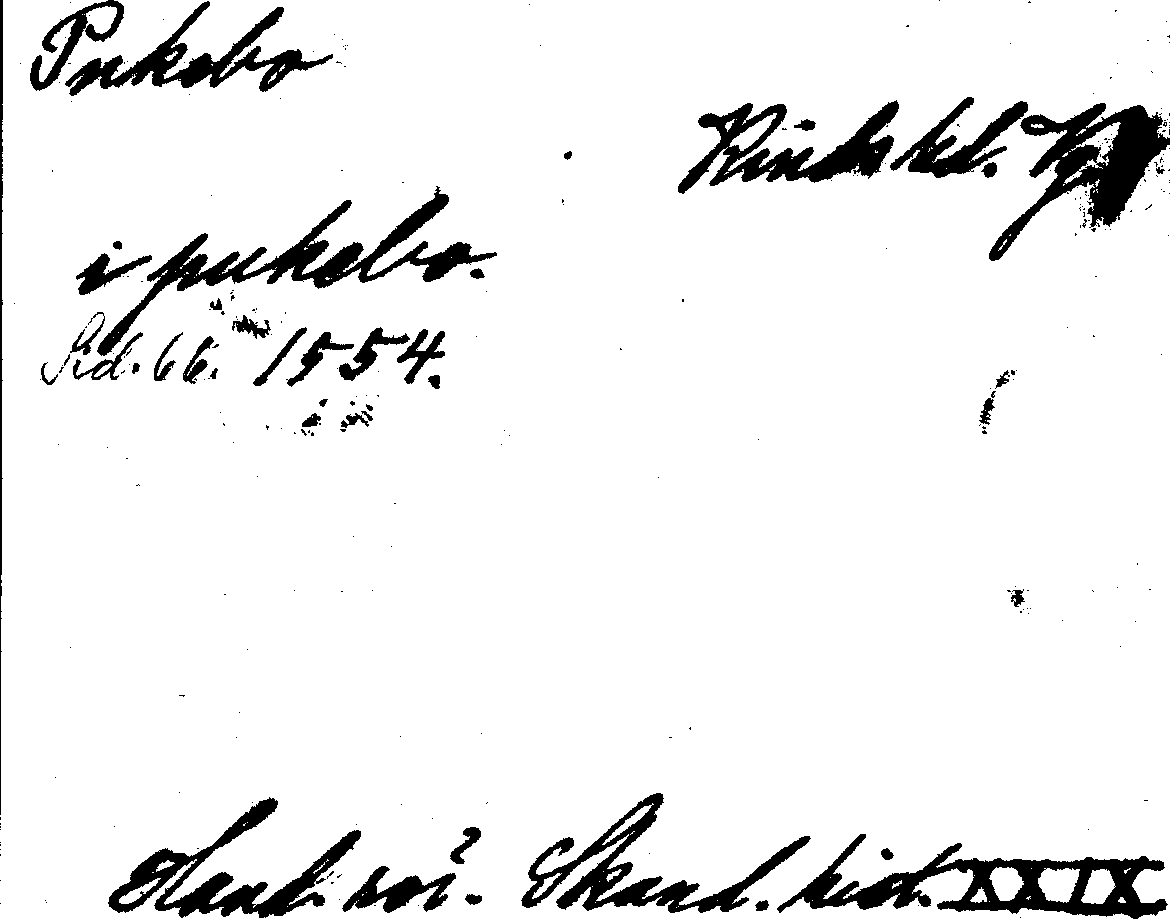 Pukebo
Kinds hd. Vg
i pukebo.
Sid. 66. 1554.
Handl. rör. Skand. hist. XXIX